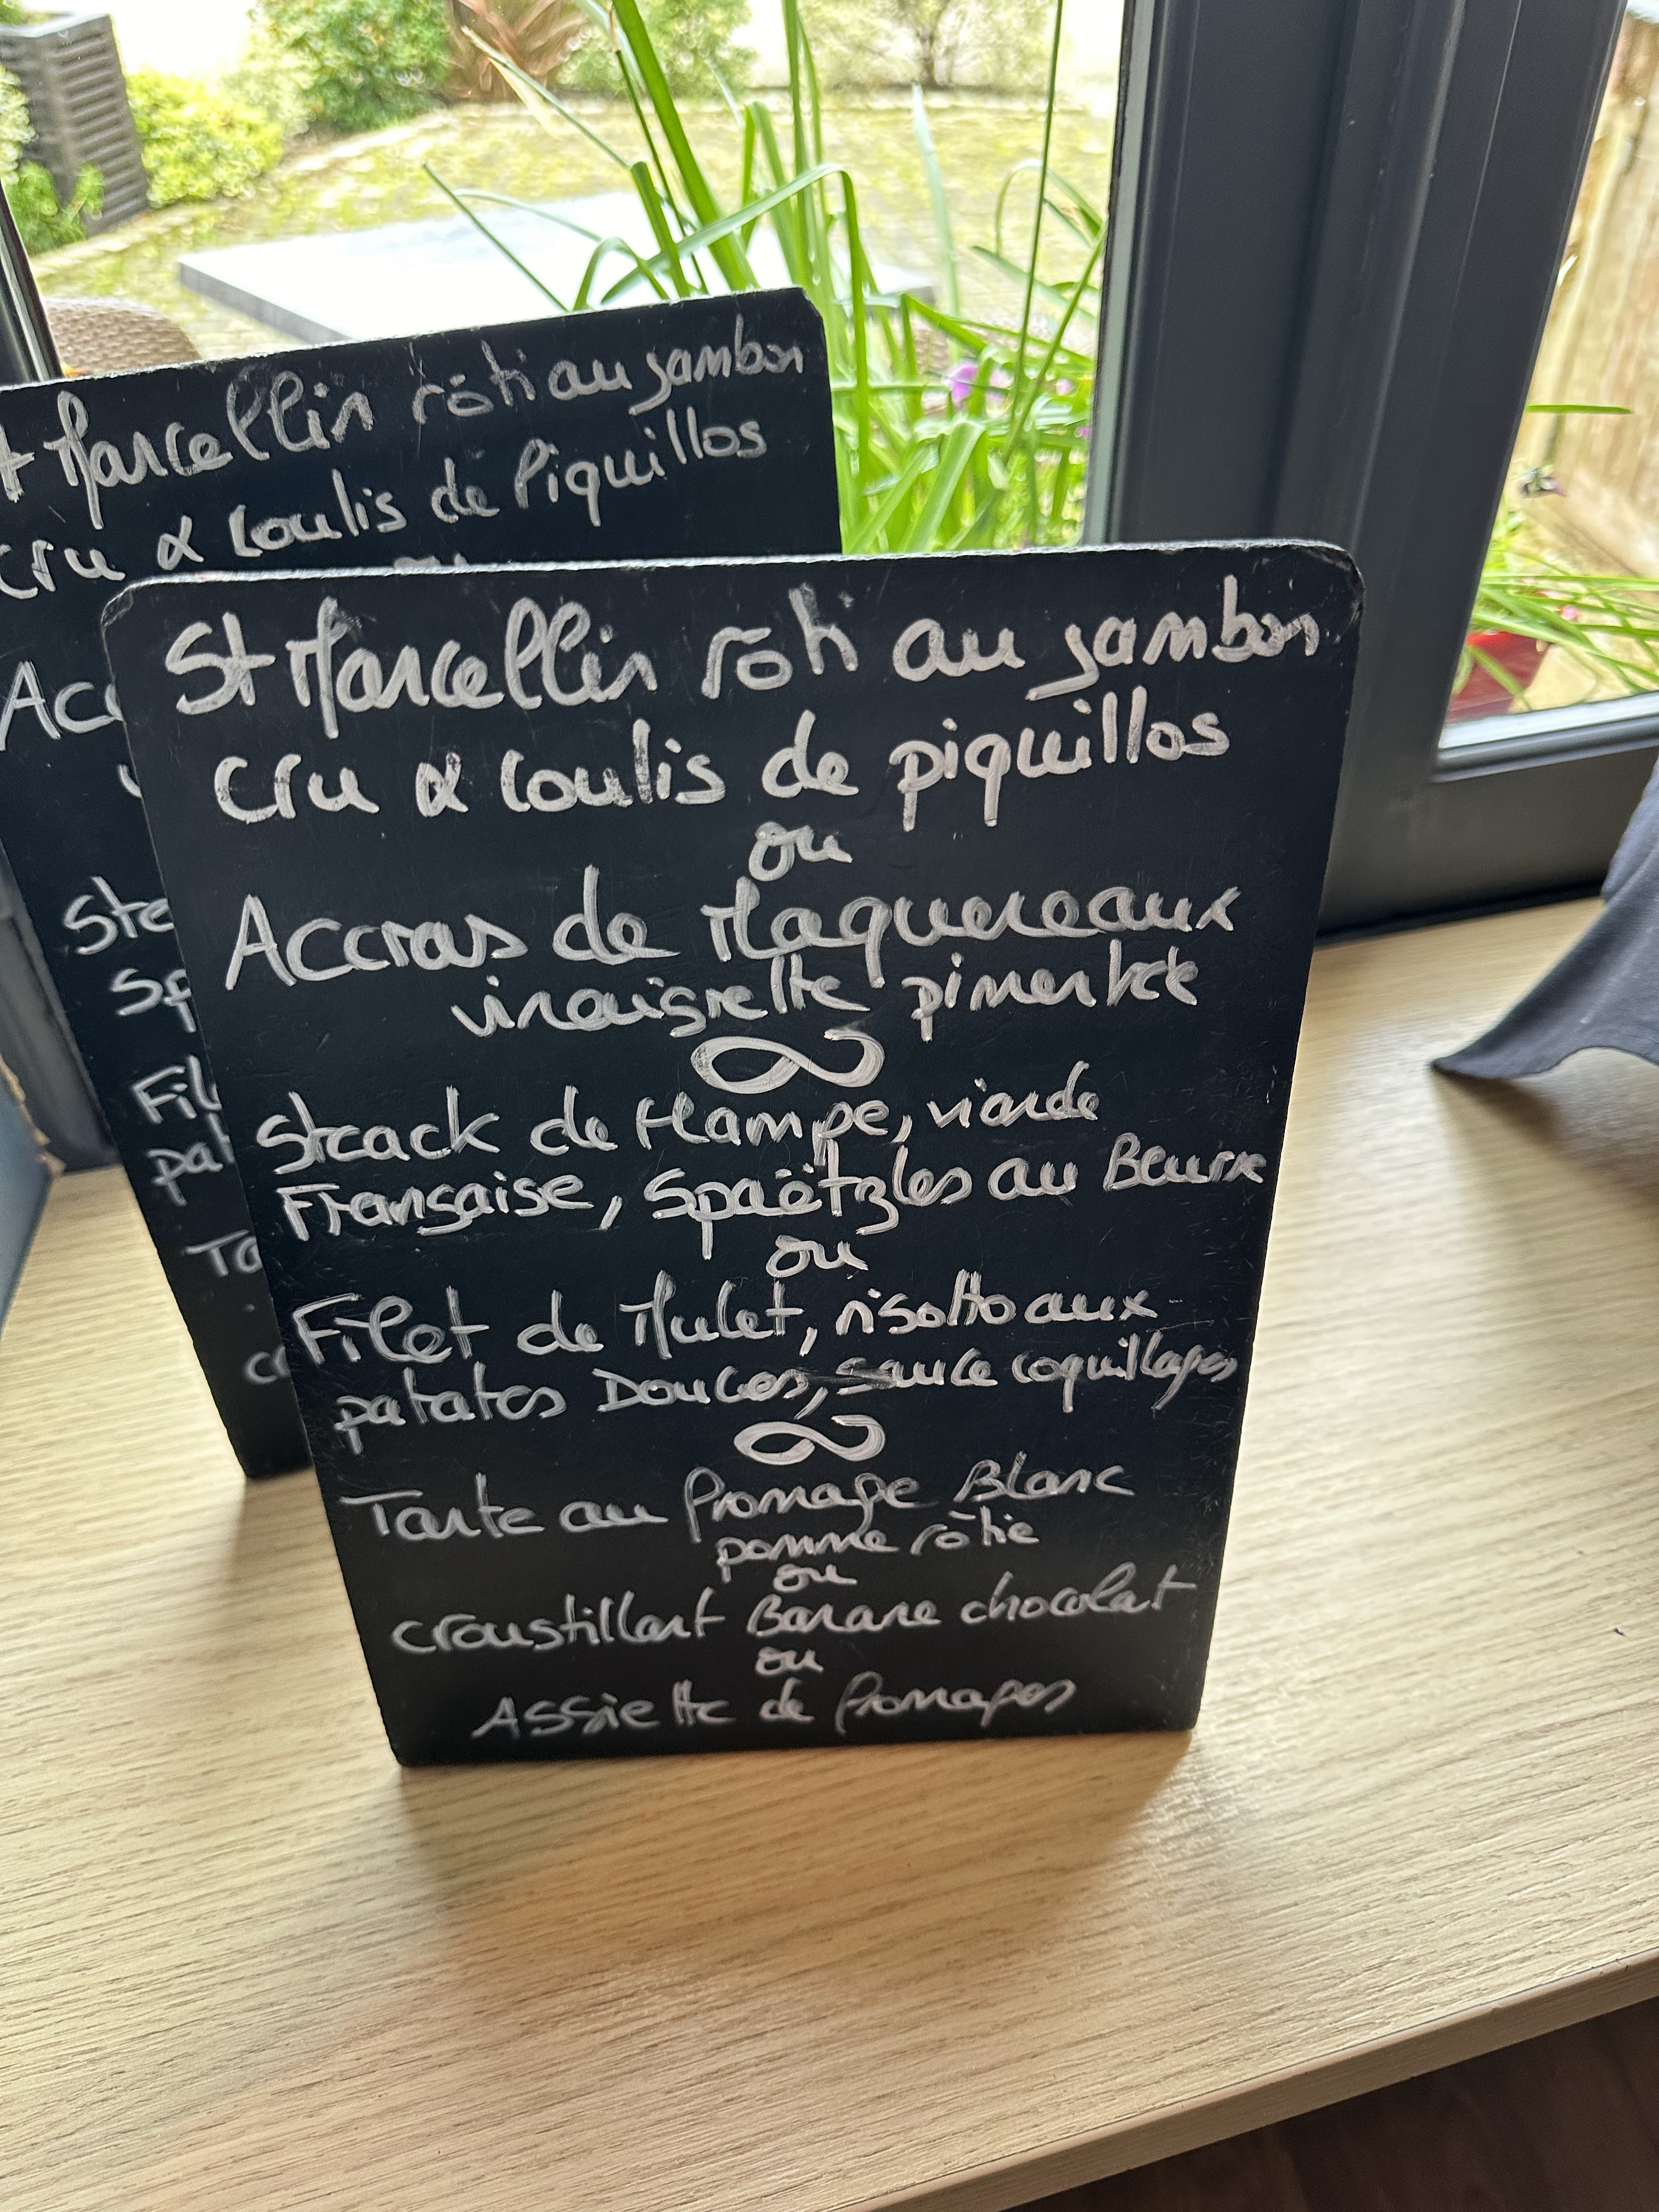 St Marcellin rôti au jambon
cru & coulis de Piquillos
Acc
Ste
Sp
Fil
pat
Ta
St Marcellin rôti au jambon
cru & coulis de piquillos
ou
Accras de Maquereaux
vinaigrette pimentée
Steack de Hampe, viande
Française, Spaëtzles au Beurre
ou
Filet de Mulet, risotto aux
patates Douces, sauce coquillages
Tarte au fromage Blanc
pomme rôtie
ou
croustillant Banane chocolat
ou
Assiette de fromages